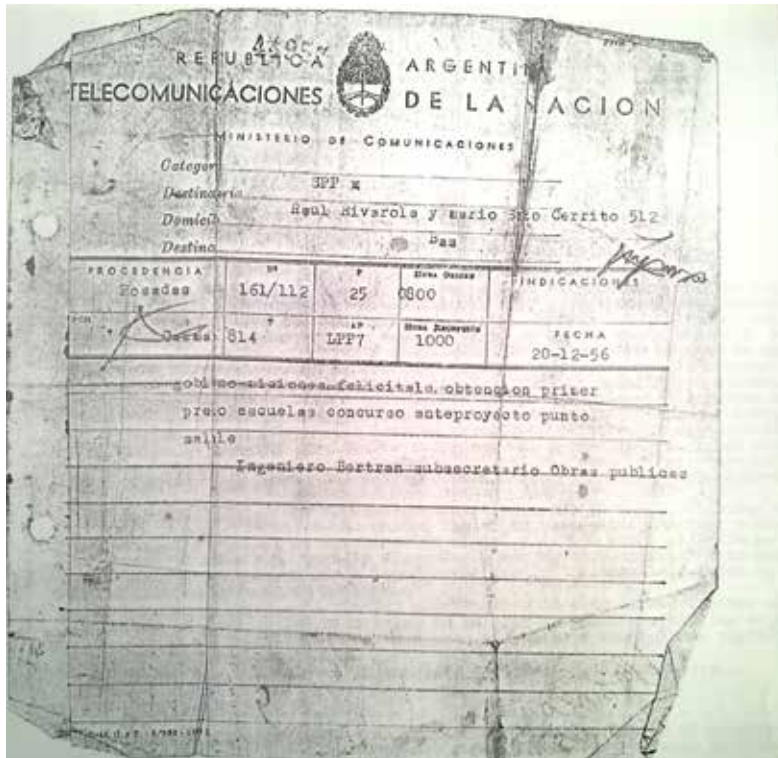 REPUBLICA ARGENTI
TELECOMUNICACIONES DE LA NACION
MINISTERIO DE COMUNICACIONES
Categor
SPP x
Destinatario
Raul Rivarola y Mario Soto Cerrito 512
Domicil
Destino
Bas
PROCEDENCIA Nº P Hora INDICACIONES
Posadas 161/112 25 0800
814 LPP7 Hora Recepción 1000 FECHA 20-12-56
gobierno misiones felicitale obtencion primer
preio escuelas concurso anteproyecto punto
salile
Ingeniero Bertran subsecretario Obras publicas